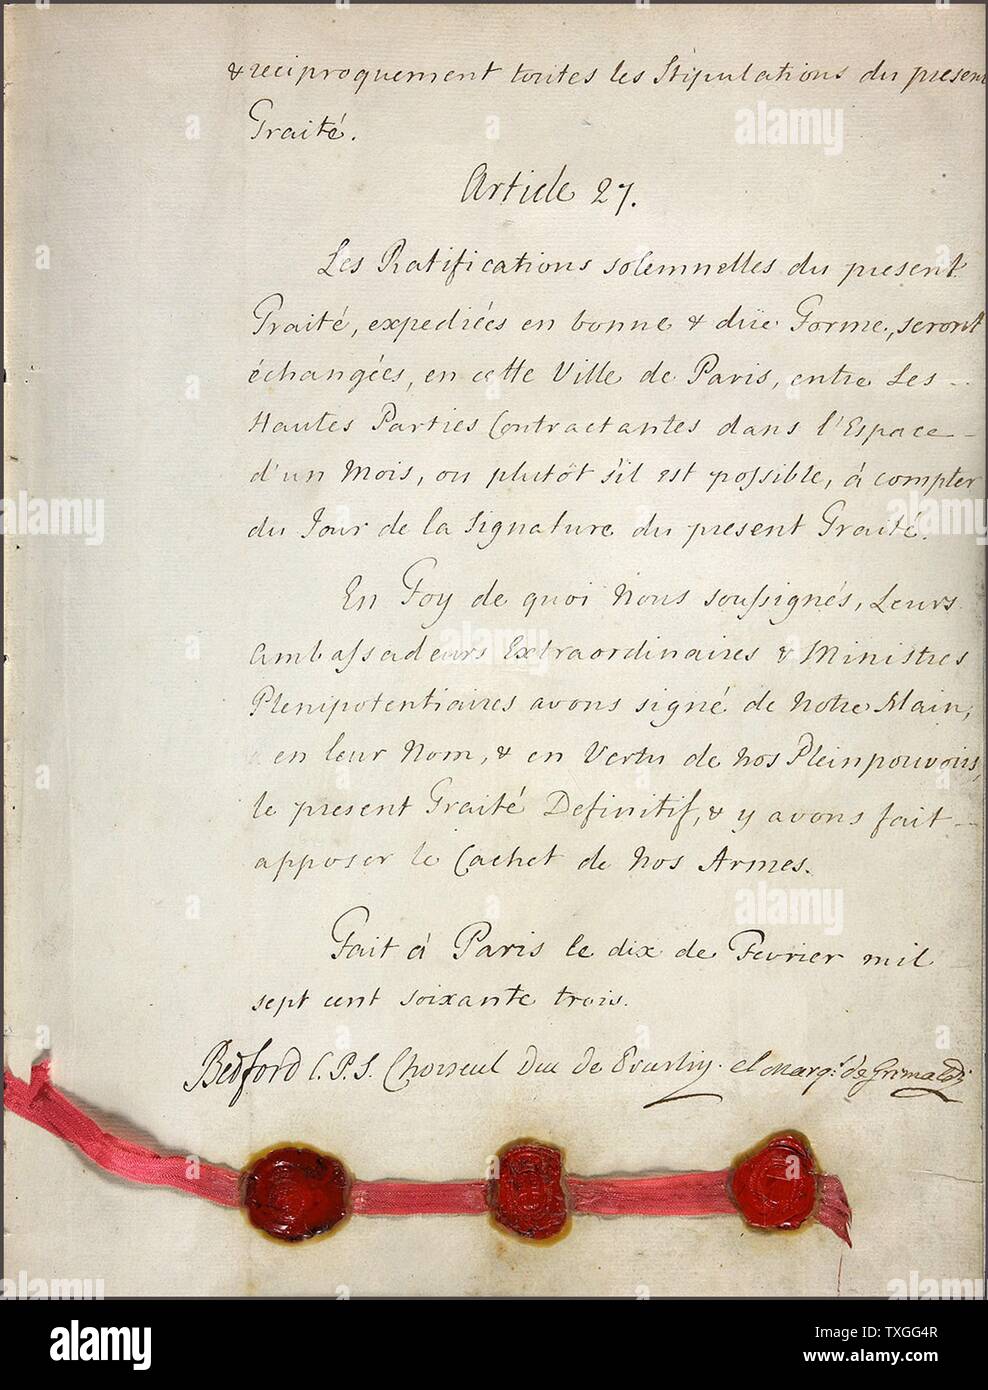 & reciproquement toutes les Stipulations du present
Traité.
Article 27.
Les Ratifications solemnelles du present
Traité, expediées en bonne & düe Forme, seront
échangées, en cette Ville de Paris, entre Les
Hautes Parties Contractantes dans l'Espace
d'un Mois, ou plutôt s'il est possible, á compter
du Jour de la Signature du present Traité.
En Foy de quoi Nous soussignés, Leurs
Ambassadeurs Extraordinaires & Ministres
Plenipotentiaires avons signé de Notre Main,
en leur Nom, & en Vertu de nos Pleinpouvoirs,
le present Traité Definitif, & y avons fait
apposer le Cachet de nos Armes.
Fait á Paris le dix de Fevrier mil
sept cent soixante trois.
Bedford C.P.S. Choiseul Duc de Praslin. el Marq.s de Grimaldi
alamy
Image ID: TXGG4R
www.alamy.com